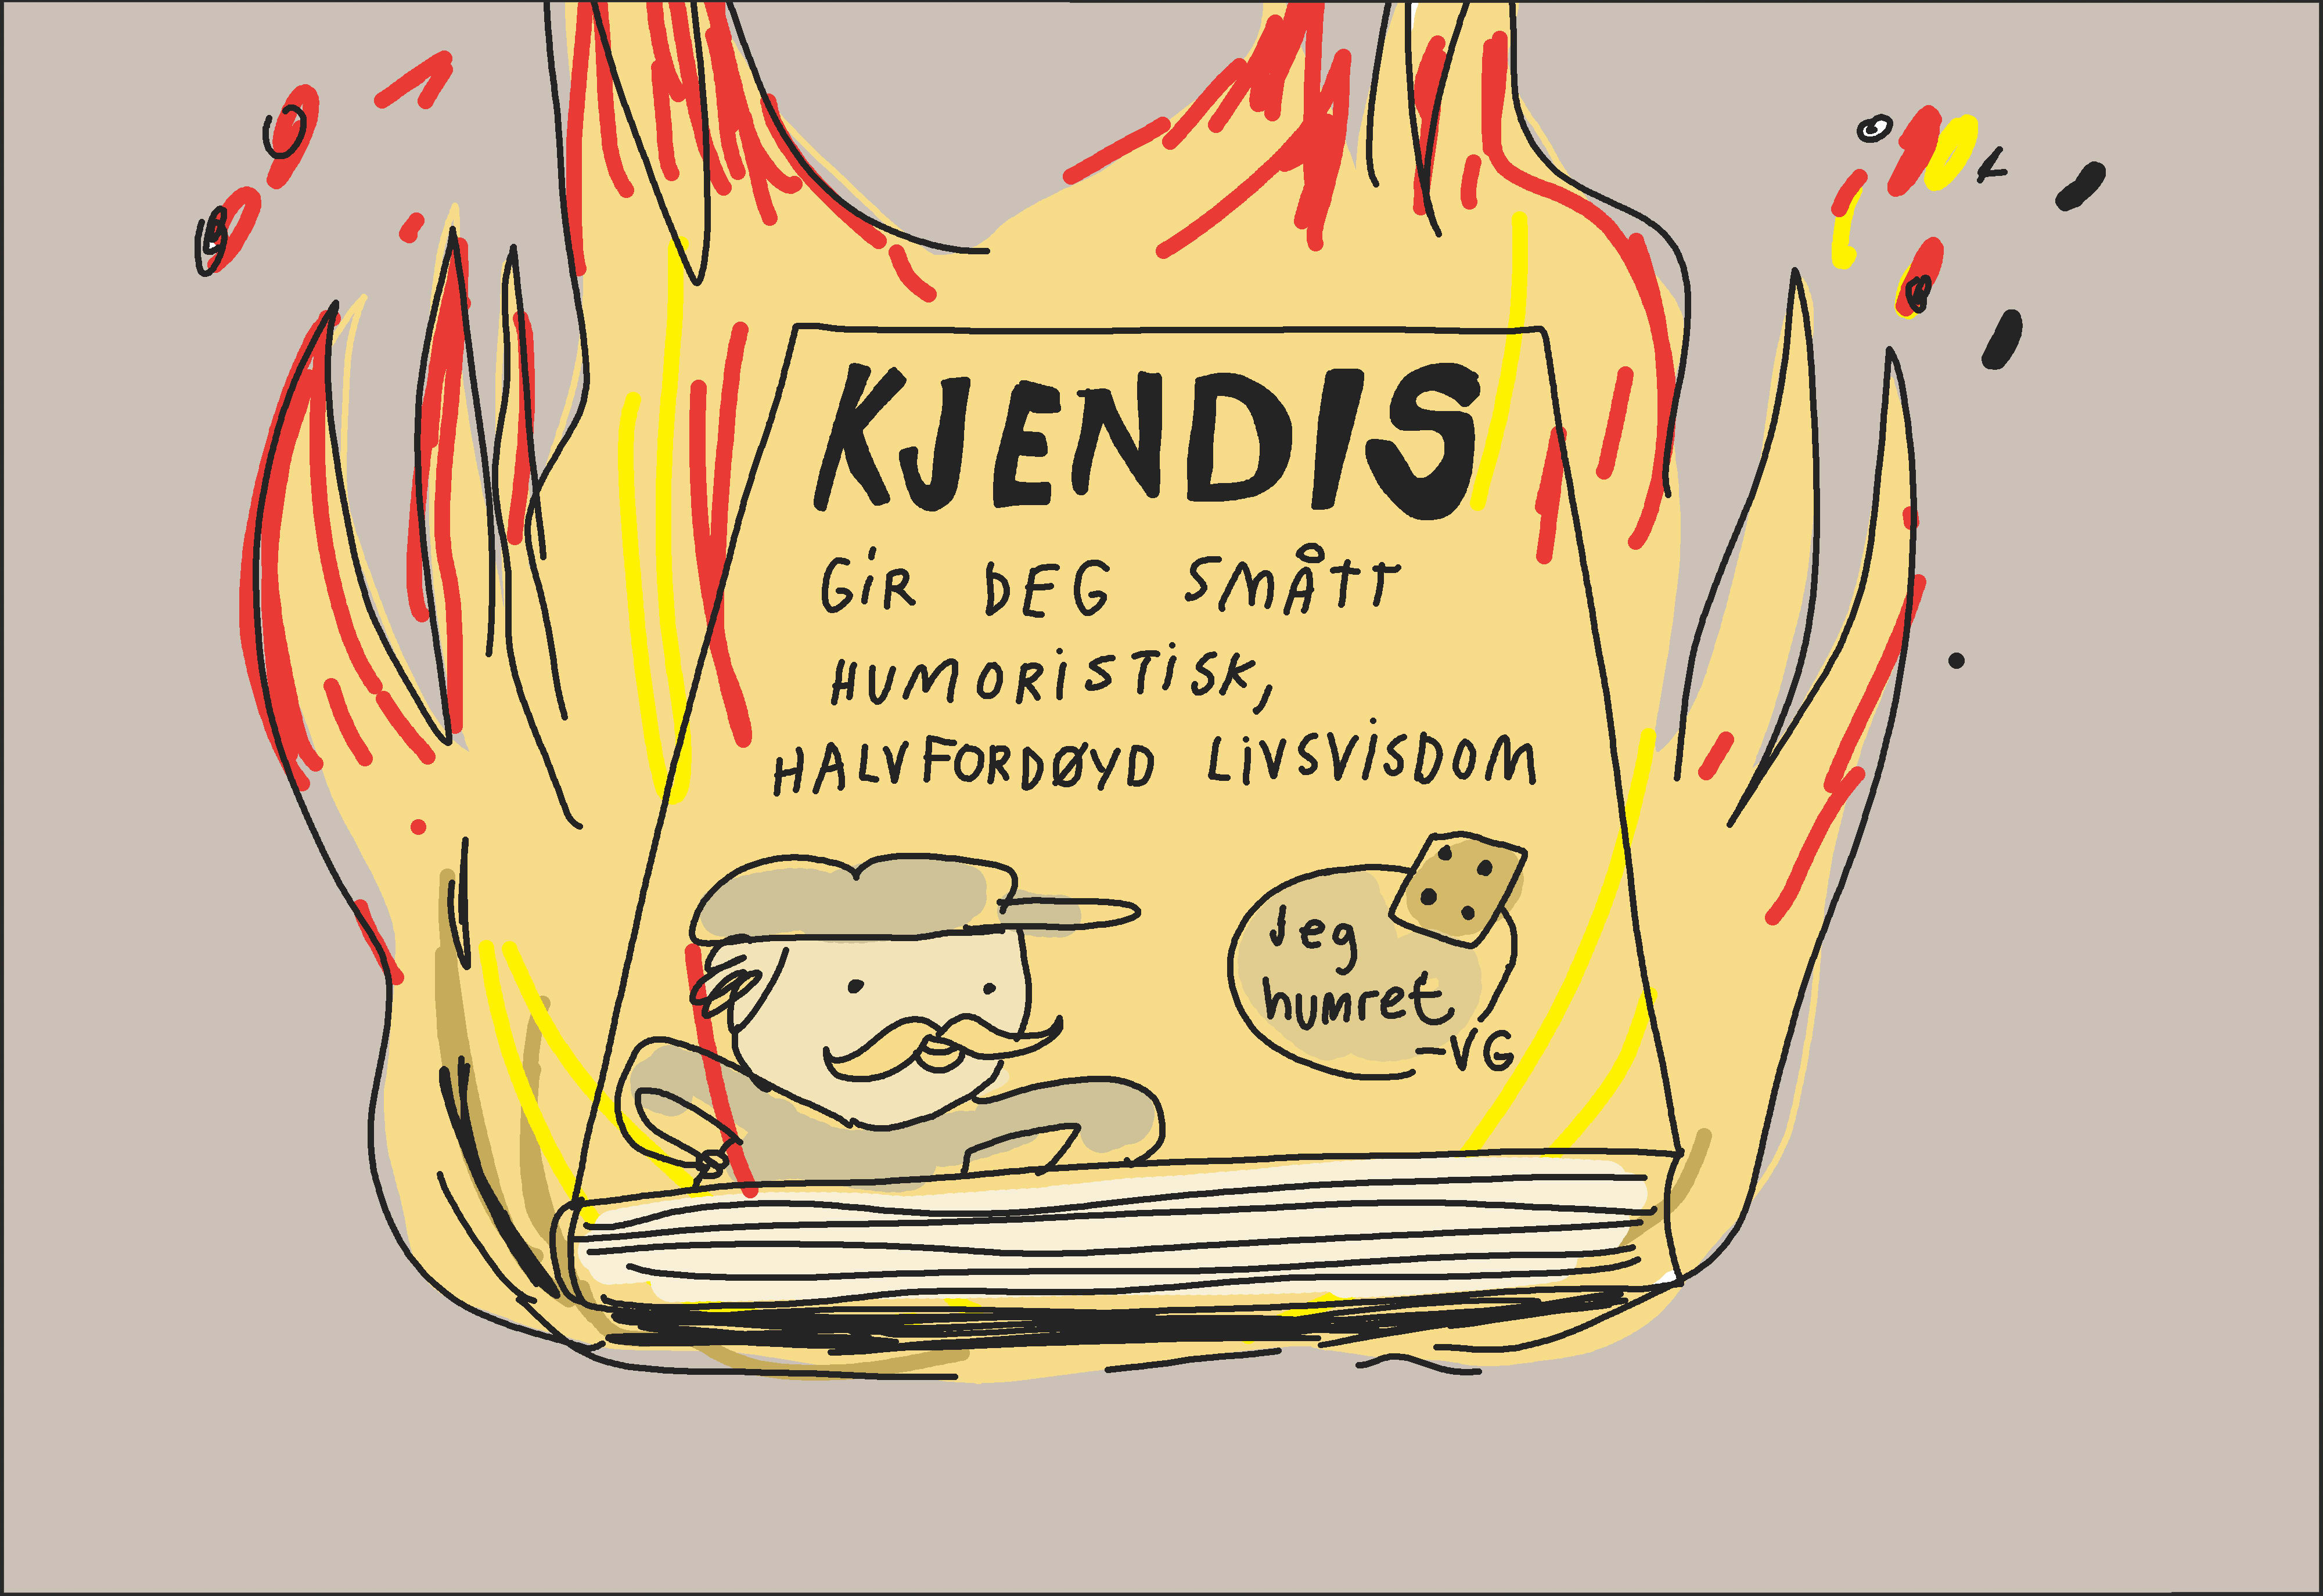 KJENDIS
GiR DEG SMÅTT
HUMORiSTiSK,
HALVFORDØYD LiVSViSDOM
Jeg
humret
-VG